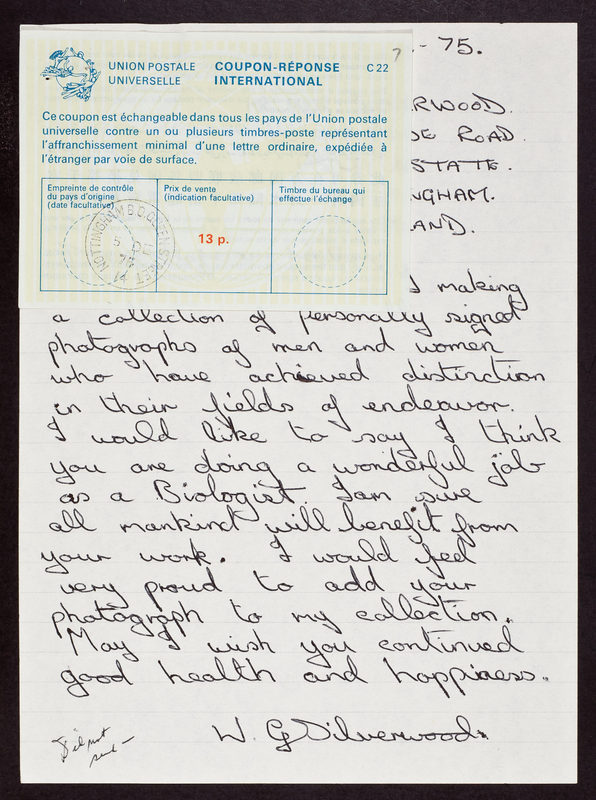 - 75.
UNION POSTALE
UNIVERSELLE
COUPON-RÉPONSE
INTERNATIONAL
C 22
Ce coupon est échangeable dans tous les pays de l'Union postale
universelle contre un ou plusieurs timbres-poste représentant
l'affranchissement minimal d'une lettre ordinaire, expédiée à
l'étranger par voie de surface.
Empreinte de contrôle
du pays d'origine
(date facultative)
Prix de vente
(indication facultative)
Timbre du bureau qui
effectue l'échange
NOTTINGHAM B.O. QUEEN STREET
5 DE
74
13 p.
RWOOD.
DE ROAD.
STATE.
NGHAM.
AND.
I making
a collection of personally signed
photographs of men and women
who have achieved distinction
in their fields of endeavor.
I would like to say I think
you are doing a wonderful job
as a Biologist. I am sure
all mankind will benefit from
your work. I would feel
very proud to add your
photograph to my collection.
May I wish you continued
good health and happiness.
W. G Silverwood.